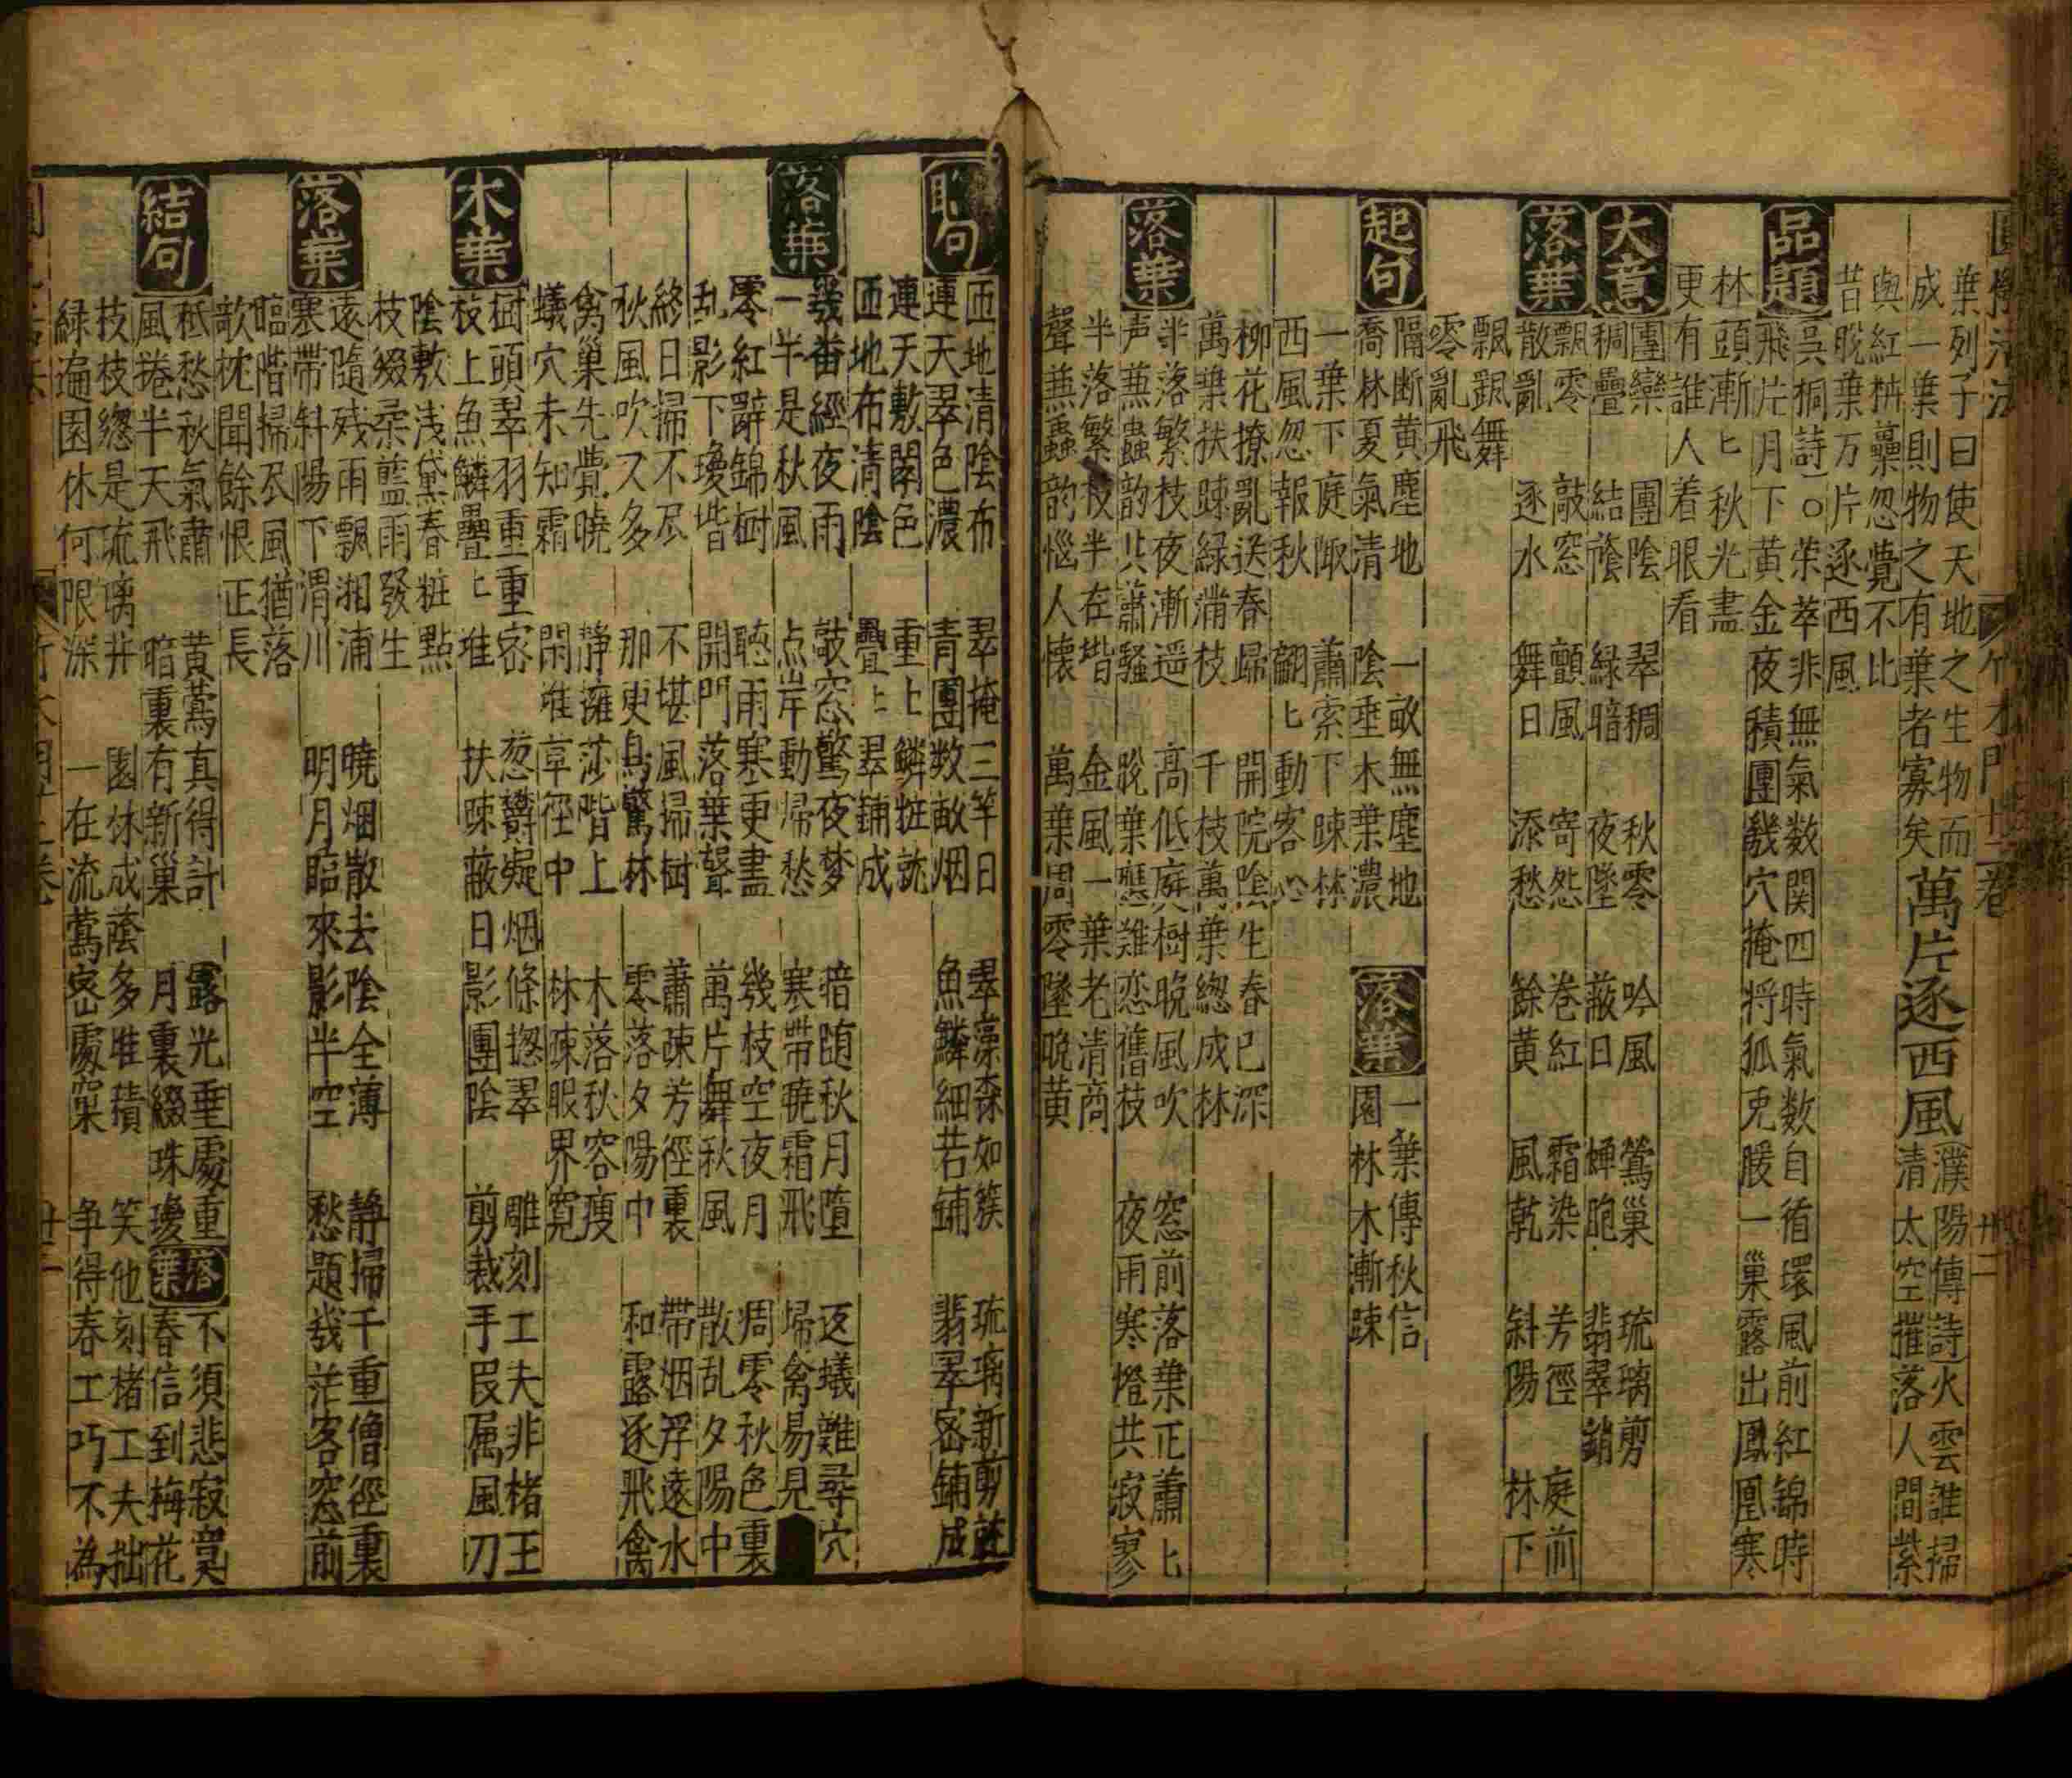 圓機活法 竹木門廿二卷 卅二
葉列子曰使天地之生物而
成一葉則物之有葉者寡矣
萬片逐西風
濮陽傳詩火雲誰掃
清太空摧落人間紫
與紅栟蘗忽覺不比
昔脫葉万片逐西風
品題
吳桐詩○荣萃非無氣数関四時氣数自循環風前紅錦時
飛片月下黄金夜積團幾穴掩将狐兎腹一巢露出鳳凰寒
林頭漸匕秋光盡
更有誰人着眼看
大意
團欒 團陰 翠稠 秋零 吟風 鶯巢 琉璃剪
稠疊 結蔭 緑暗 夜墜 蔽日 蟬咆 翡翠銷
落葉
飄零 敲窓 顫風 寄怨 卷紅 霜染 芳徑 庭前
散亂 逐水 舞日 添愁 餘黄 風乾 斜陽 林下
飄颻舞
零亂飛
起句
隔断黄塵地 一畝無塵地
喬林夏氣清 陰垂木葉濃
落葉
一葉傳秋信
園林木漸踈
一葉下庭陬 蕭索下踈林
西風忽報秋 翩匕動客心
柳花撩亂送春歸 開院陰生春已深
萬葉扶踈緑滿枝 千枝萬葉緫成林
落葉
半落繁枝夜漸遥 高低庭樹晩風吹 窓前落葉正蕭匕
声蕪蟲韵共蕭騷 脫葉應難恋舊枝 夜雨寒燈共寂寥
半落繁枝半在堦 金風一葉老清商
聲蕪蟲韵惱人懐 萬葉周零墜晩黄
聨句
匝地清陰布 翠掩三竿日 翠藻森如簇 琉璃新剪就
連天翠色濃 青團数畝烟 魚鱗細若鋪 翡翠密鋪成
連天敷閑色 重上鱗粧就
匝地布清陰 疊上翠鋪成
落葉
幾畨經夜雨 敲窓驚夜梦 暗随秋月墮 返蟻難尋穴
一半是秋風 点岸動帰愁 寒帶曉霜飛 帰禽易見
零紅辭錦樹 聴雨寒更盡 幾枝空夜月 凋零秋色裏
乱影下瓊堦 開門落葉聲 萬片舞秋風 散乱夕陽中
終日掃不尽 不堪風掃樹 蕭疎芳徑裏 带烟浮遠水
秋風吹又多 那更鳥驚林 零落夕陽中 和露逐飛禽
禽巢先覺曉 静擁莎階上 木落秋容瘦
蟻穴未知霜 閑堆草徑中 林疎眼界寬
木葉
樹頭翠羽重重密 葱欝凝烟條揔翠 雕刻工夫非楮王
枝上魚鱗疊匕堆 扶踈蔽日影團陰 剪裁手段属風刀
陰敷浅黛春粧點
枝綴柔藍雨發生
落葉
遠隨残雨飄湘浦 曉烟散去陰全薄 静掃千重僧徑裏
寒帶斜陽下渭川 明月臨來影半空 愁題幾茫客窓前
臨階掃尽風猶落
欹枕聞餘恨正長
結句
秪愁秋氣肅 黄鶯真得計 露光垂處重
風捲半天飛 暗裏有新巢 月裏綴珠瓊
落葉
不須悲寂寞
春信到梅花
枝枝緫是琉璃井 園林成蔭多堆積 笑他刻楮工夫拙
緑遍園林何限深 一在流鶯密處窠 争得春工巧不為